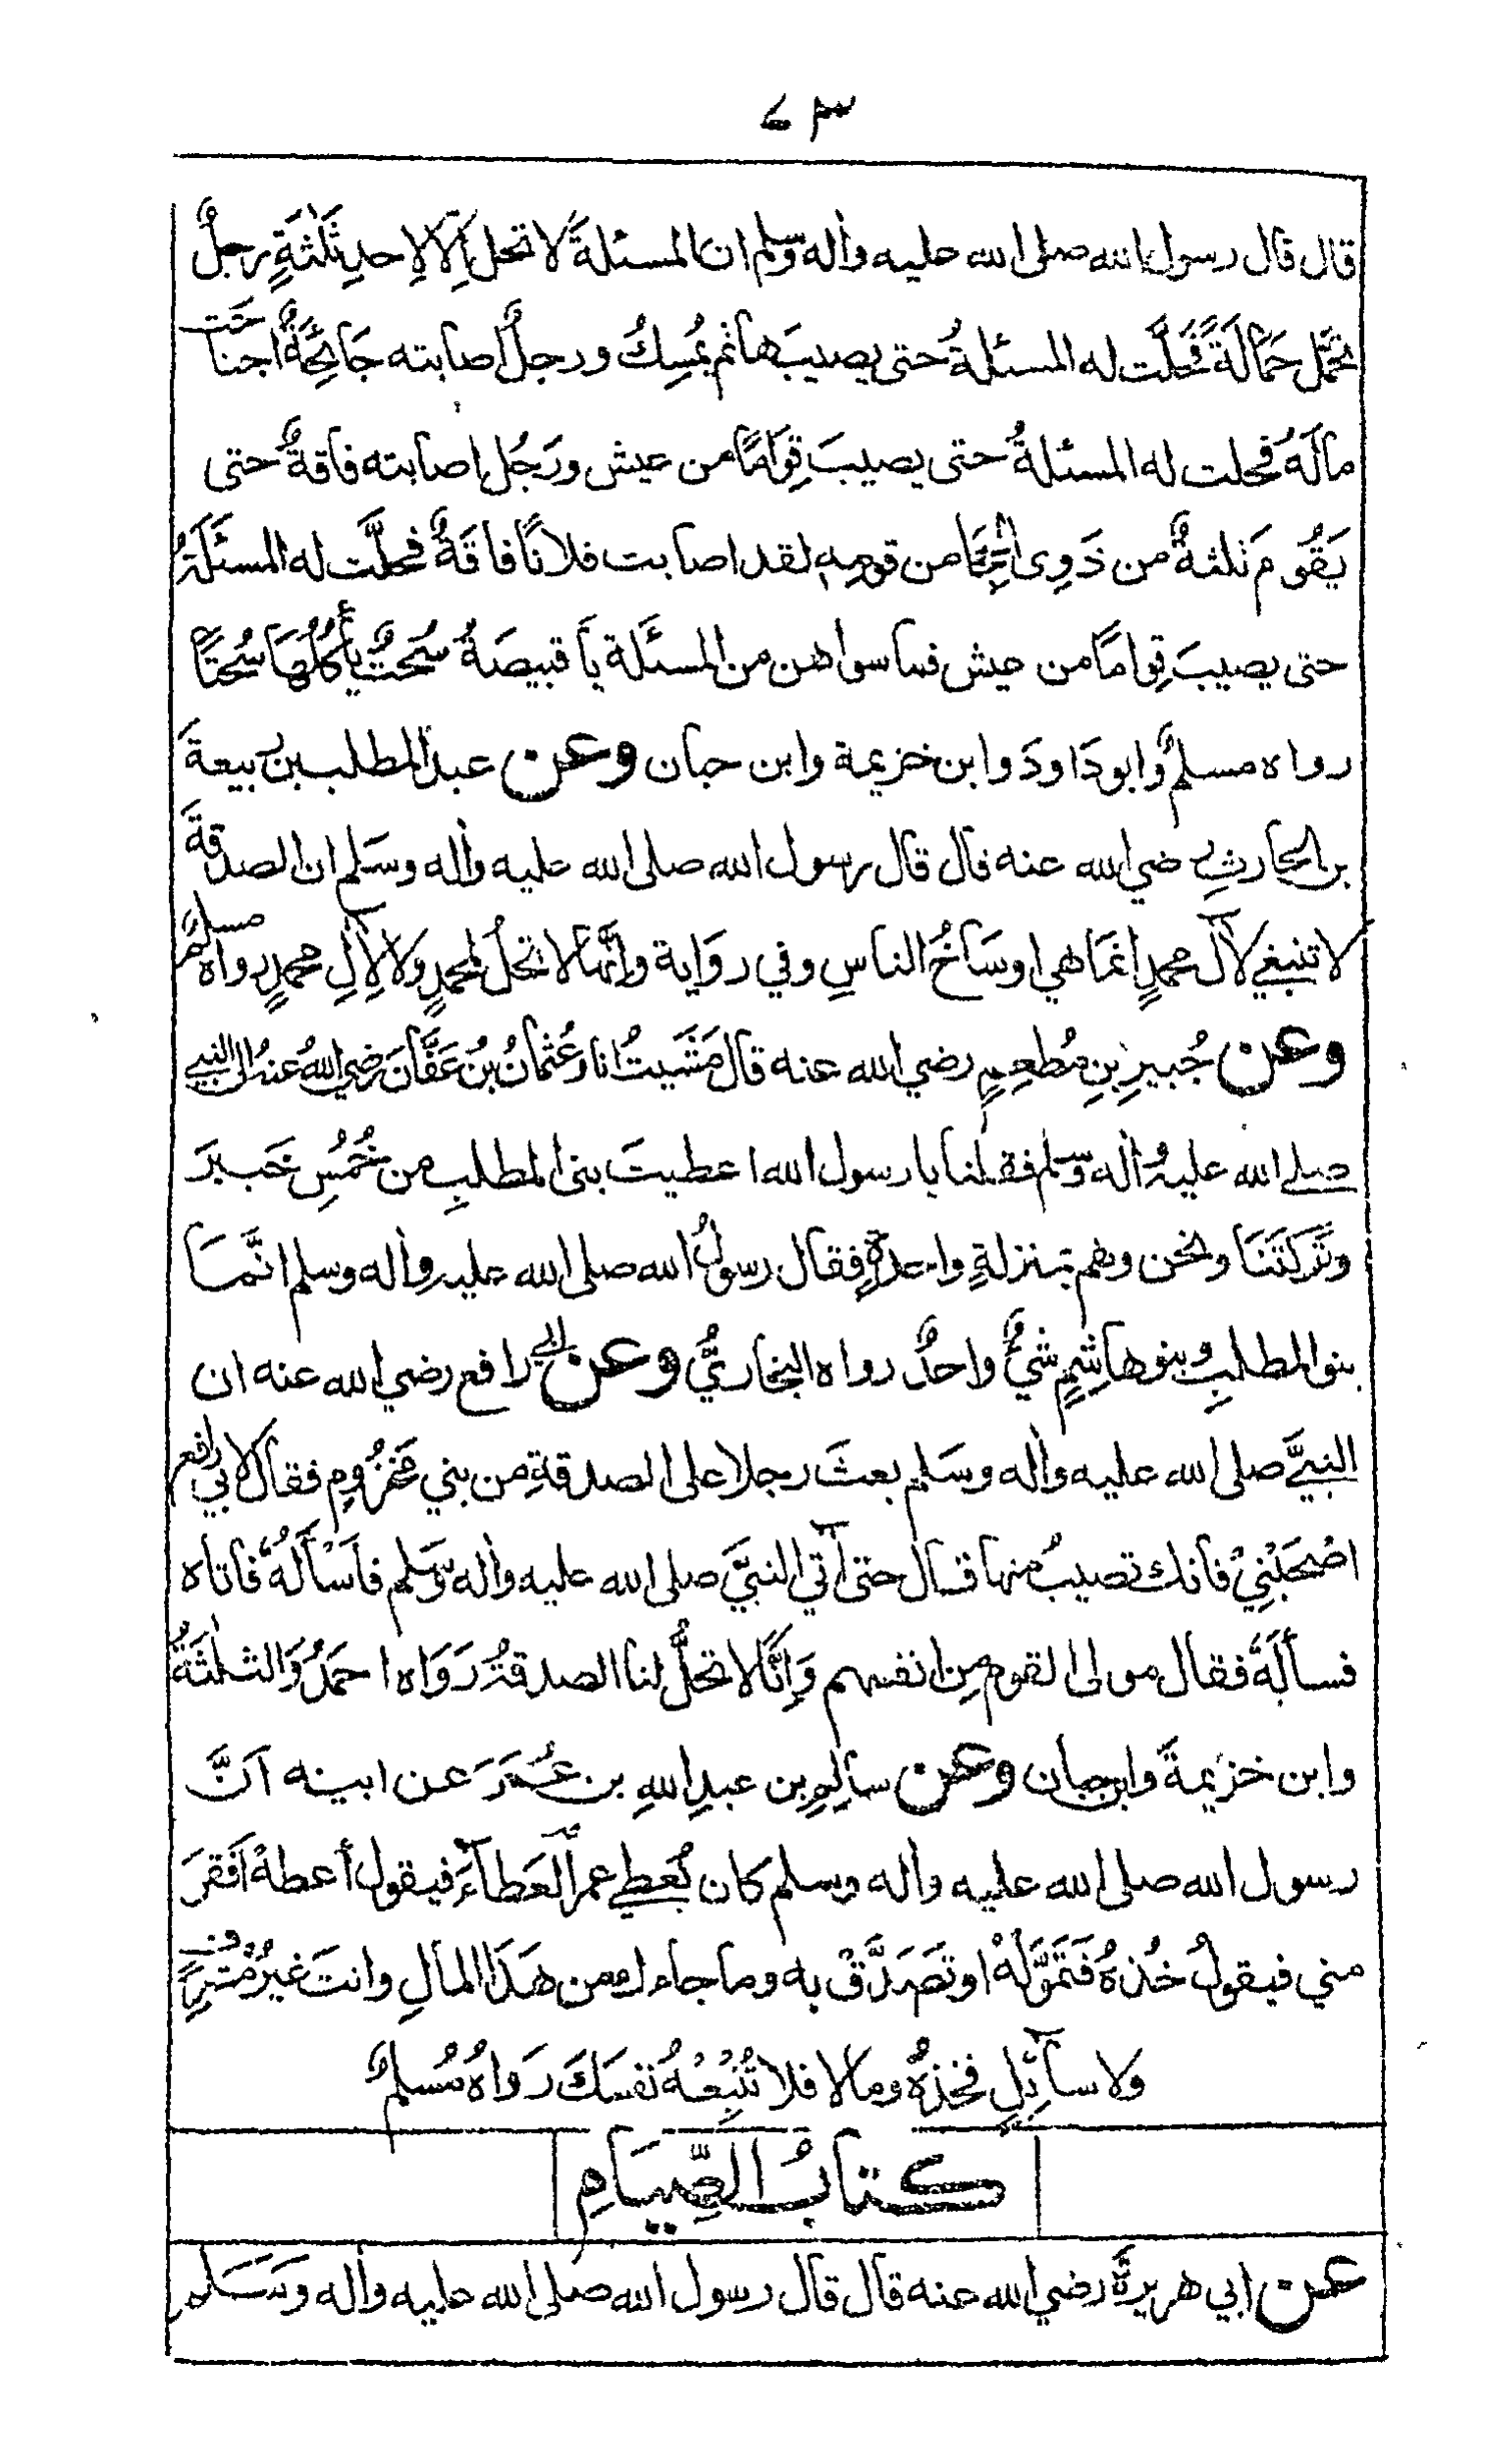 ٧٣
قال قال رسول الله صلى الله عليه واٰله وسلم ان المسئلةَ لا تحل اِلا لاِحدِ ثَلٰثةٍ رجلٌ
تحمَّل حَمَالَةً فحَلَّت له المسئلةُ حتى يصيبَها ثم يُمسِكُ ورجلٌ اصابته جَائِحَةٌ اجتاحَت
مالَهُ فحلت له المسئلةُ حتى يصيبَ قِوَامًا من عيش ورَجُل اصابته فاقةٌ حتى
يَقُومَ ثلثةٌ من ذَوِى الحِجَا من قومِهٖ لقد اصابت فلانًا فاقَةٌ فحلَّت له المسئَلَةُ
حتى يصيبَ قِوامًا من عيش فما سواهن من المسئَلة يا قبيصَةُ سُحتٌ يأكُلُهَا سُحتًا
رواه مسلمٌ وابو دَاودَ وابن خزيمة وابن حبان وعن عبد المطلب بن ربيعةَ
بن الحارثِ رضي الله عنه قال قال رسول الله صلى الله عليه واٰله وسَلم ان الصدقةَ
لا تنبغي لاٰل محمدٍ انما هي اوسَاخُ الناسِ وفي روَاية وانَّها لا تحلُ لمحمدٍ ولا لاٰلِ محمدٍ رواه مسلمٌ
وعن جُبيرِ بنِ مُطعِمٍ رضي الله عنه قال مَشَيتُ انا وعُثمانُ بنُ عَفَّانَ رضي اللهُ عنهُ الى النبي
صلى الله عليهِ واٰله وسلم فقلنا يا رسول الله اعطيتَ بنى المطلبِ من خُمُسِ خَيبرَ
وتَركتَنَا ونحن وهم بمنزلةِ واحدةٍ فقال رسولُ الله صلى الله عليه واٰله وسلم انَّمَا
بنو المطلبِ وبنو هاشِمٍ شئٌ واحدٌ رواه البخاريُّ وعن ابي رافع رضي الله عنه ان
النبيَّ صلى الله عليه واٰله وسَلم بعثَ رجلا على الصدقةِ من بني مَخزُومٍ فقال لابي رافع
اصْحَبْنِيْ فانك تصيبُ منها قال حتى آتي النبيَّ صلى الله عليه واٰله وسَلم فاَسْأَلَهُ فاتاه
فسألَهُ فقال مولى القوم مِن انفسهم وَاِنَّا لا تحلُّ لنا الصدقةُ رَوَاه احمَدُ وَالثلٰثَةُ
وابن خزيمةَ وابن حبان وعن سالِمِ بن عبدِ اللهِ بن عُمَرَ عن ابيه اَنَّ
رسول الله صلى الله عليه واٰله وسلم كان يُعطي عمرَ العَطاءَ فيقول أعطهْ اَفقرَ
مني فيقولُ خُذهُ فَتَمَوَّلْهُ او تَصَدَّقْ به وما جاءك من هَذَا المالِ وانتَ غيرُ مُشرِفٍ
ولا سآئِلٍ فخذهُ ومالا فلا تُتْبِعْهُ نفسَكَ رَوَاهُ مُسلمٌ
كتابُ الصِّيَامِ
عن ابي هريرةَ رضي الله عنه قال قال رسول الله صلى الله عليه واٰله وسَلم